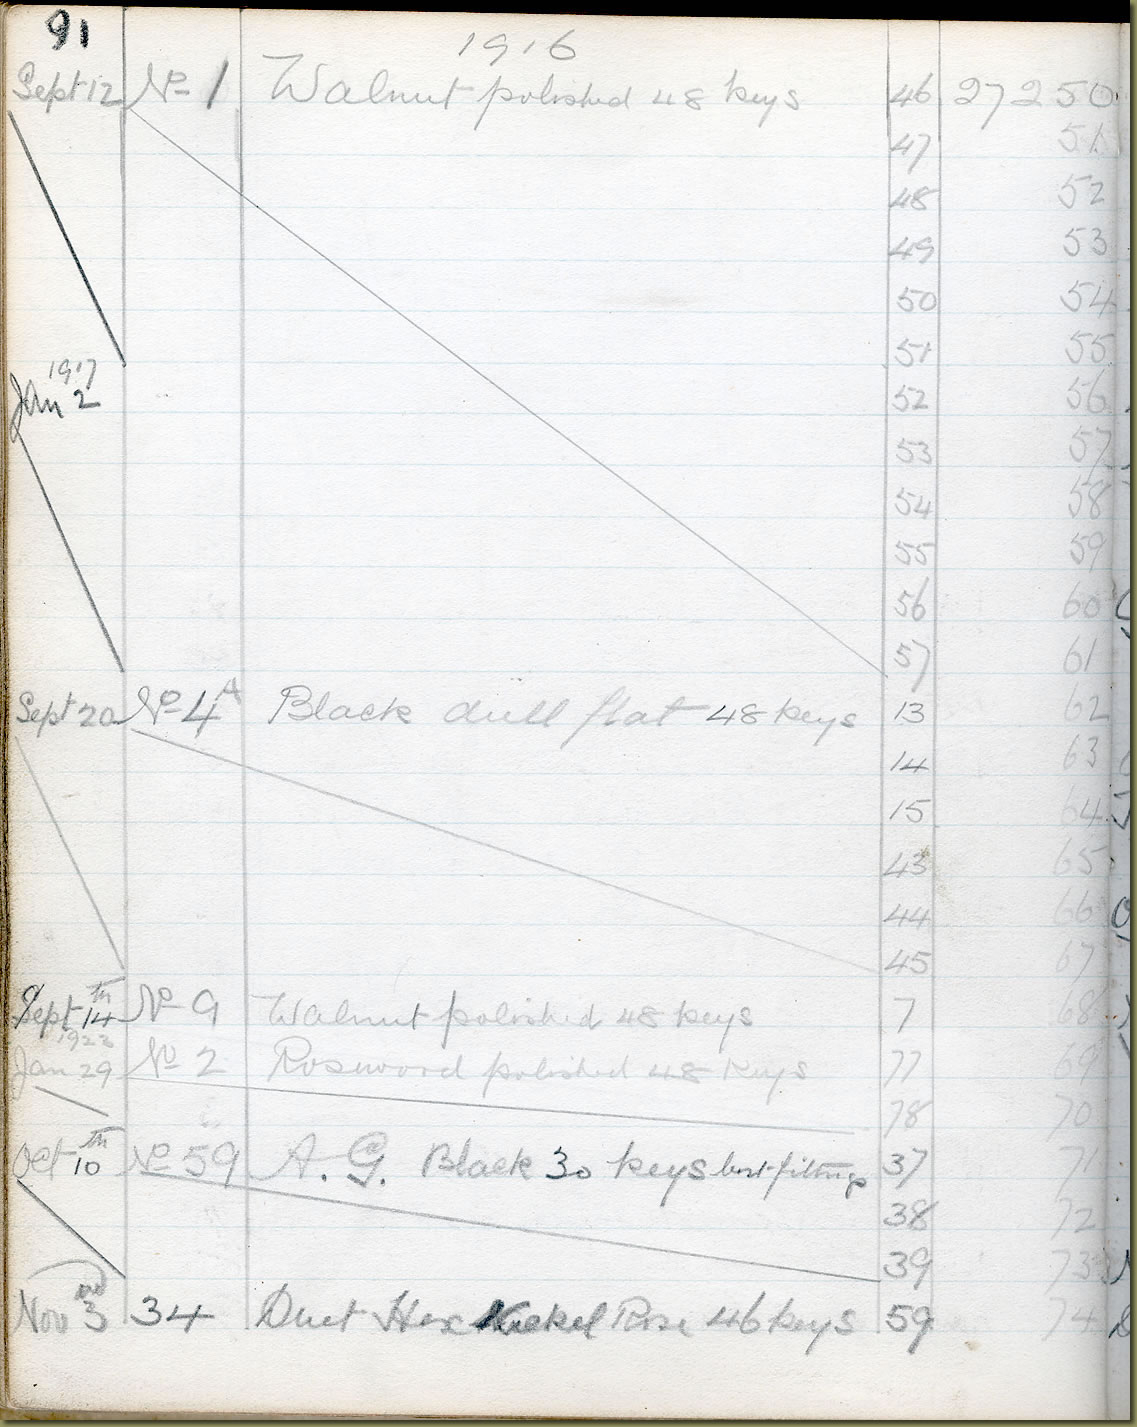 91
1916
Sept 12 No 1 Walnut polished 48 keys 46 27250
47 51
48 52
49 53
50 54
51 55
1917
Jan 2 52 56
53 57
54 58
55 59
56 60
57 61
Sept 20 No 4A Black dull flat 48 keys 13 62
14 63
15 64
43 65
44 66
45 67
Sept 14th No 9 Walnut polished 48 keys 7 68
Jan 29 No 2 Rosewood polished 48 keys 77 69
78 70
Oct 10th No 59 A.G. Black 30 keys best fittings 37 71
38 72
39 73
Nov 3rd 34 Duet Hex Nickel Rose 46 keys 59 74